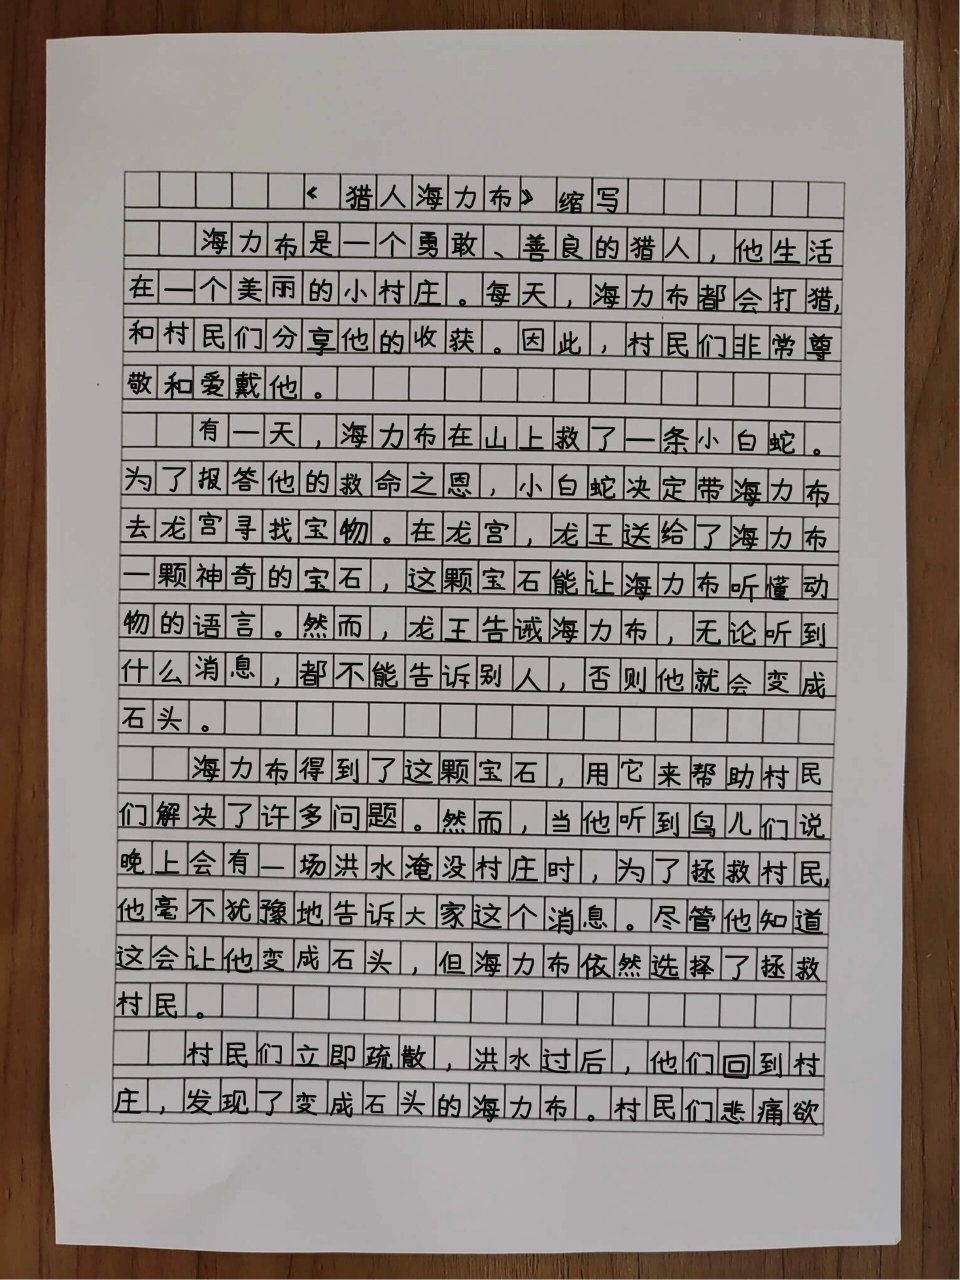 《猎人海力布》缩写
海力布是一个勇敢、善良的猎人，他生活
在一个美丽的小村庄。每天，海力布都会打猎，
和村民们分享他的收获。因此，村民们非常尊
敬和爱戴他。
有一天，海力布在山上救了一条小白蛇。
为了报答他的救命之恩，小白蛇决定带海力布
去龙宫寻找宝物。在龙宫，龙王送给了海力布
一颗神奇的宝石，这颗宝石能让海力布听懂动
物的语言。然而，龙王告诫海力布，无论听到
什么消息，都不能告诉别人，否则他就会变成
石头。
海力布得到了这颗宝石，用它来帮助村民
们解决了许多问题。然而，当他听到鸟儿们说
晚上会有一场洪水淹没村庄时，为了拯救村民，
他毫不犹豫地告诉大家这个消息。尽管他知道
这会让他变成石头，但海力布依然选择了拯救
村民。
村民们立即疏散，洪水过后，他们回到村
庄，发现了变成石头的海力布。村民们悲痛欲